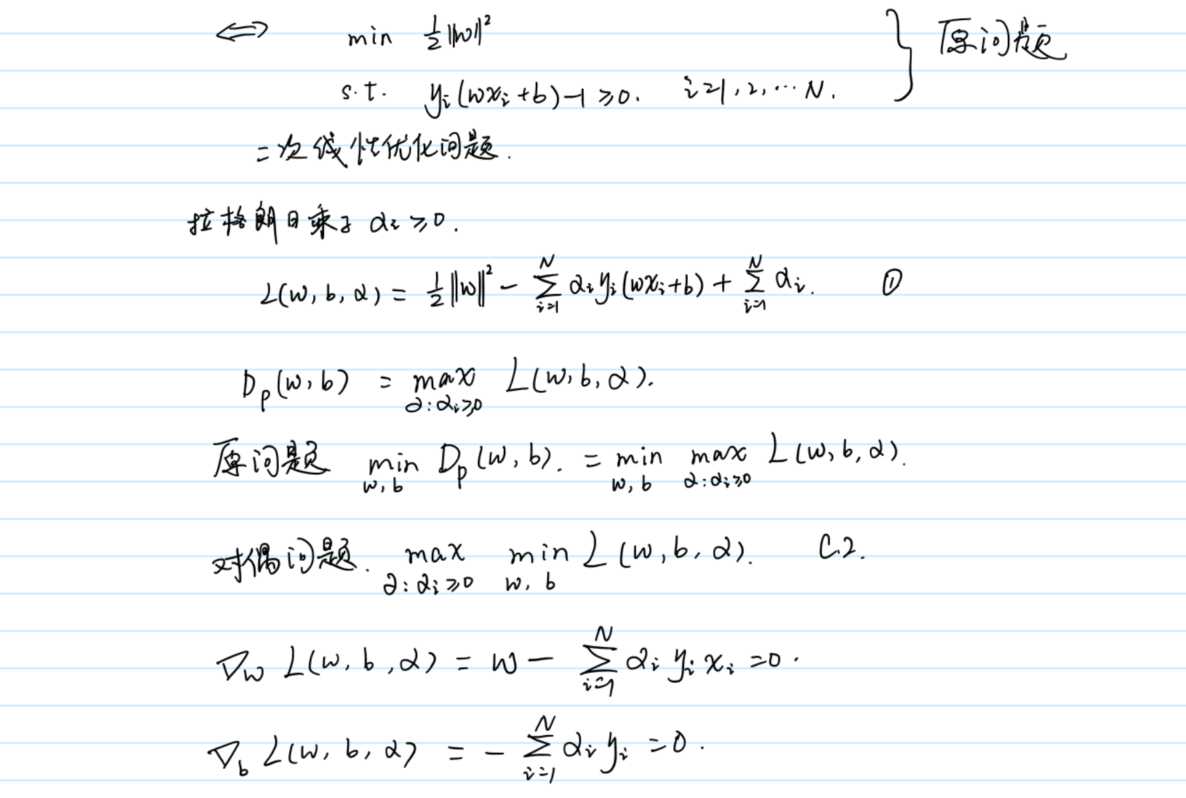 ⇔ min ½||w||² } 原问题
s.t. yᵢ(wxᵢ+b)-1≥0. i=1,2,…N.
二次线性优化问题.
拉格朗日乘子 αᵢ≥0.
L(w,b,α) = ½||w||² - ∑_{i=1}^{N} αᵢyᵢ(wxᵢ+b) + ∑_{i=1}^{N} αᵢ. ①
D_p(w,b) = max_{α:αᵢ≥0} L(w,b,α).
原问题 min_{w,b} D_p(w,b). = min_{w,b} max_{α:αᵢ≥0} L(w,b,α).
对偶问题. max_{α:αᵢ≥0} min_{w,b} L(w,b,α). C.2.
∇_w L(w,b,α) = w - ∑_{i=1}^{N} αᵢyᵢxᵢ =0.
∇_b L(w,b,α) = - ∑_{i=1}^{N} αᵢyᵢ =0.